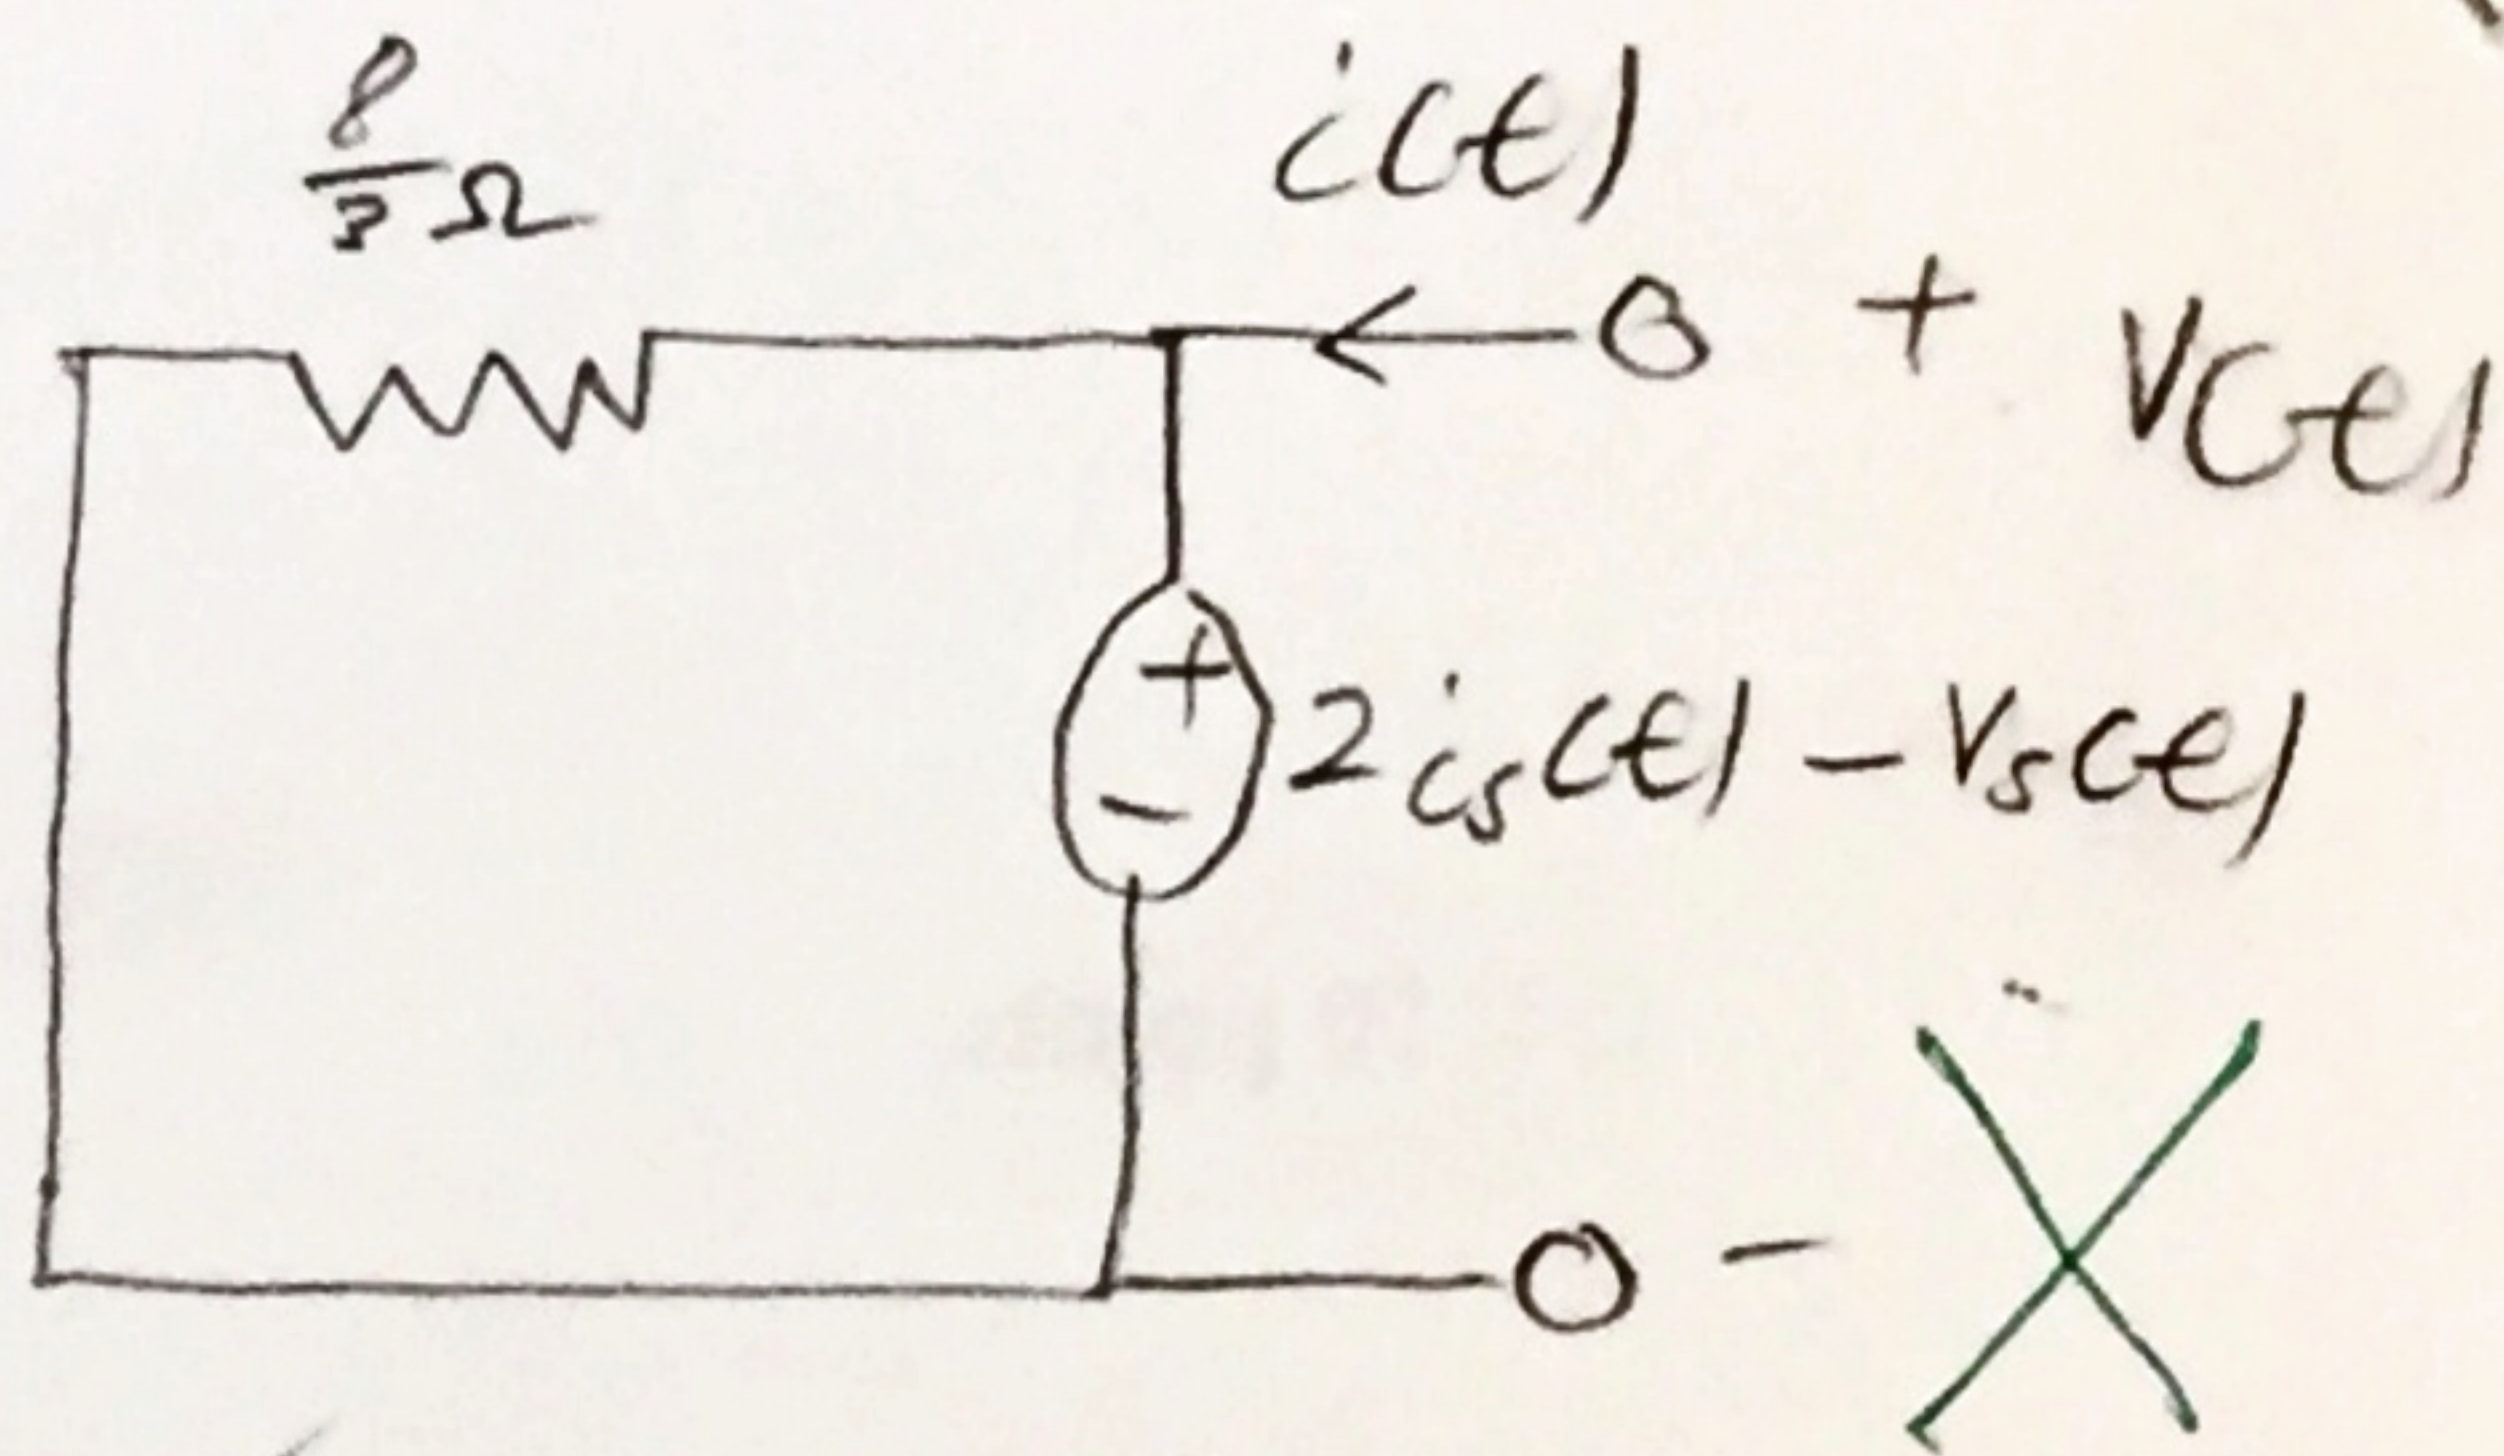 8/3 Ω
i(t)
+ v(t)
+
2is(t) - vs(t)
-
-